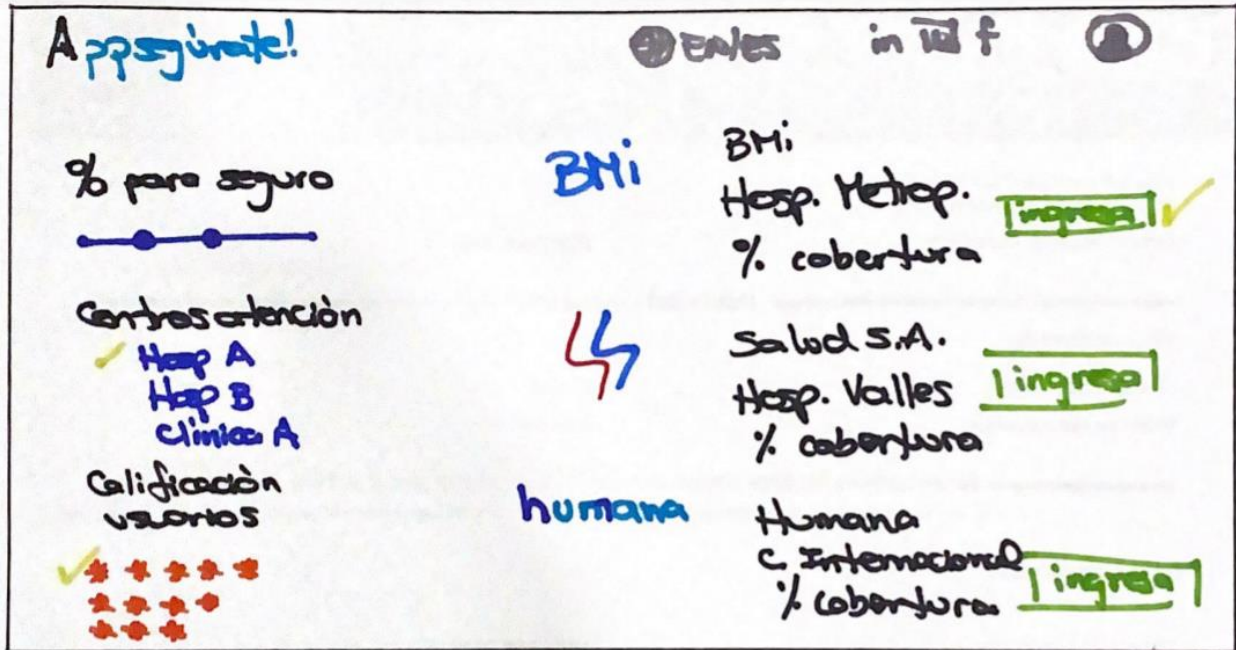 Appsegúrate!
EN/ES in f
% para seguro
Centros atención
Hosp A
Hosp B
Clínica A
Calificación
usuarios
BMi
humana
BMi
Hosp. Metrop.
% cobertura
ingresa
Salud S.A.
Hosp. Valles
% cobertura
ingresa
Humana
C. Internacional
% cobertura
ingresa